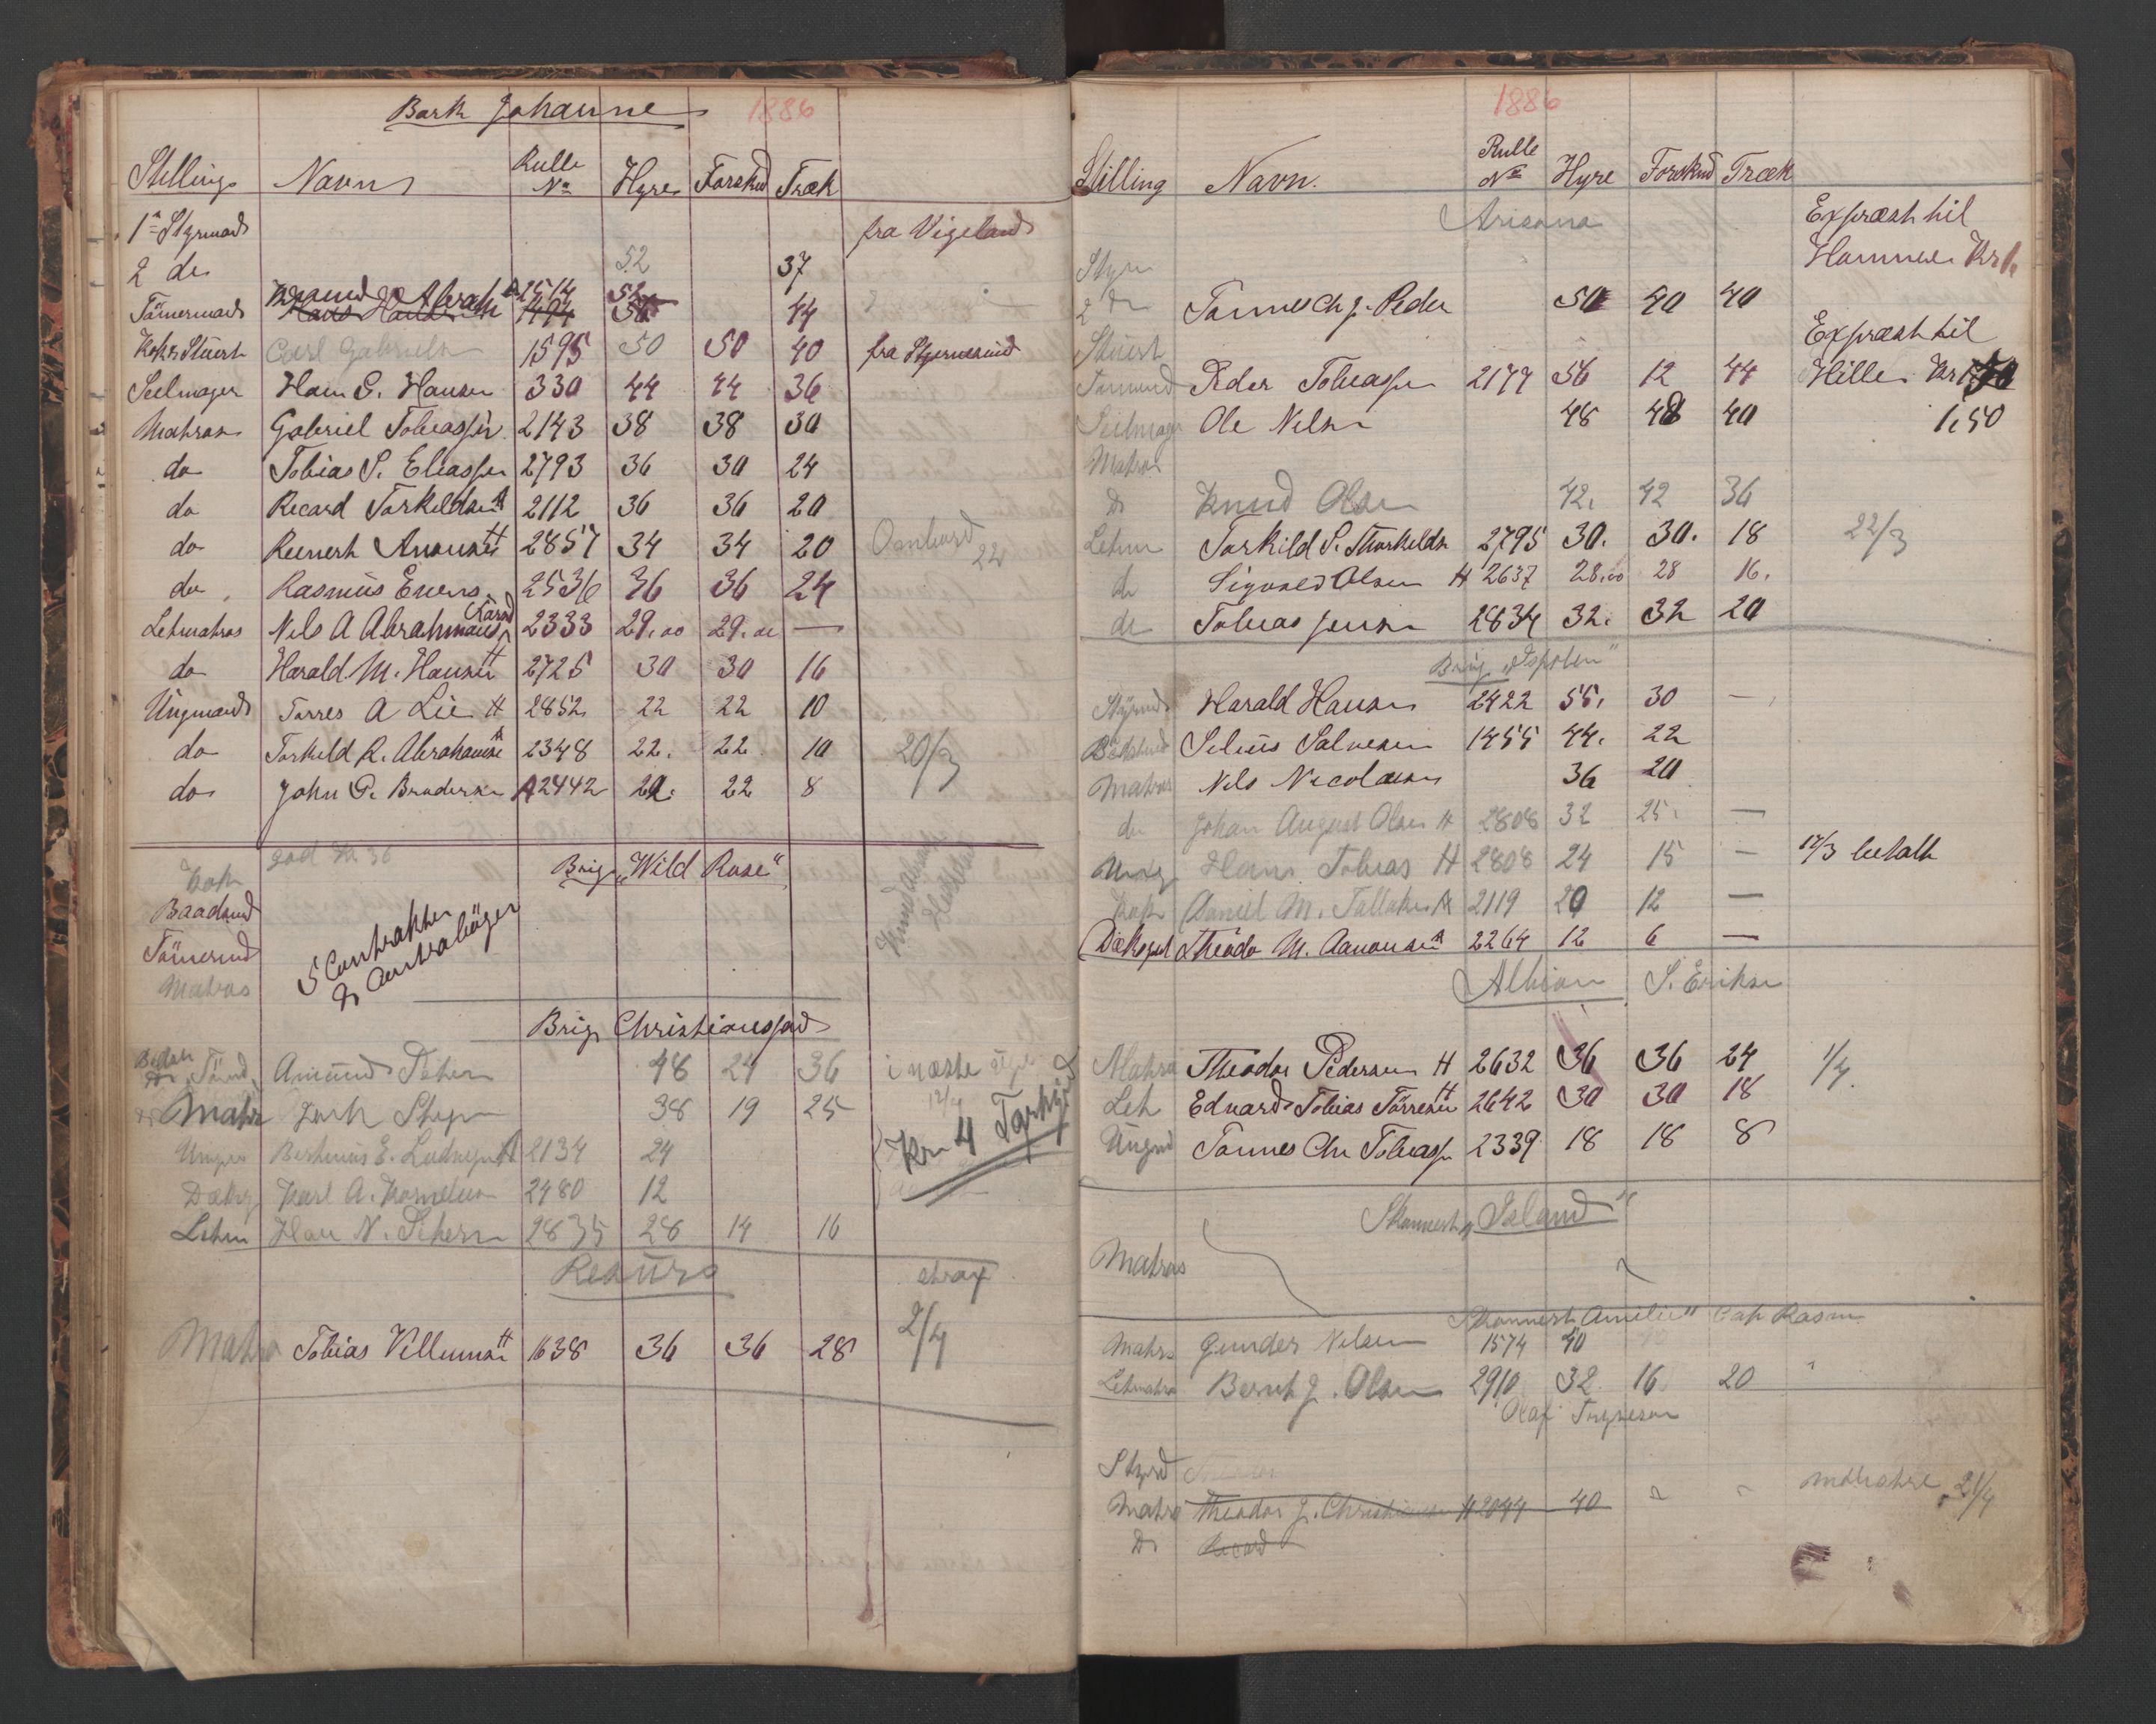 Bark Johanne 1886
Stilling Navn Rulle No Hyre Forskud Træk
1ste Styrmand fra Vigeland
2 do 52 37
Tömermand Abrah 2514 52 44
Kok & Stuert Carl Gabrielsn 1595 50 50 40 fra Stjernesund
Seilmager Hans G. Hansen 330 44 44 36
Matros Gabriel Tobiassen 2143 38 38 30
do Tobias S. Eliassen 2793 36 30 24
do Recard Torkeldsen A 2112 36 36 20
do Reinert Anonsen H 2857 34 34 20 22
do Rasmus Evens 2536 36 36 24
Letmatros Nils A Abrahmans 2333 29.00 29.00 —
do Harald M. Hansen H 2725 30 30 16
Ungmand Torres A Lie H 2852 22 22 10
do Torkeld R. Abrahamsen 2348 22. 22 10 20/3
do John G. Brodersen A 2442 22. 22 8
Kok god Kr 36
Brig „Wild Rose"
Baadsmd
Tömermd
Matros
5 Contrakter
Brig Christiansfad
Tömd Amund Peter 48 24 36 i næste
Matr Stopn 38 19 25 12/4
Kr 4
Ungm Berthinus E. Ludvigsen A 2134 24
Dækg Karl A. Kornelius 2480 12
Letm Hans N. Petersn 2835 28 14 16
Returs strax
Matro Tobias Villumsen H 1638 36 36 28 2/4
1886
Stilling Navn. Rulle No Hyre Forskud Træk
Aricana Expræst til
Hammer Kr 1.
Styrm
2 do Tønnes Ch J. Peder 50 40 40
Stuert Expræst til
Tømmermd Peder Tobiassen 2177 56 12 44 Hille Kr
Seilmager Ole Nilsen 48 48 40 1,50
Matros
do Knud Olsen 42. 42 36
Letm Torkild S. Thorkeldsn 2795 30. 30. 18 22/3
do Sigvald Olsen H 2637 28.00 28 16.
do Tobias Jensen 2834 32. 32 20
Brig
Styrmd Harald Hansen 2422 55. 30 —
Baadsmd Selius Salvesen 1455 44. 22
Matros Nils Nicolaisen 36 20
do Johan August Olsen H 2808 32 25 —
Ungm Hans Tobias H 2808 24 15 — 12/3 betalt
Kok Daniel M. Tallaksen A 2119 20 12 —
Dæksgut Theodor M. Aanonsen A 2264 12 6 —
Albion S. Eriksen
Matro Theodor Pedersen H 2632 36 36 24 1/4.
Let Eduard Tobias Törresen H 2642 30 30 18
Ungmd Tönnes Chr Tobiassen 2339 18 18 8
Skonnert „Island"
Matros
Skonnert Amelie" Capt Rasm
Matro Gunder Nilsen 1574 40
Letmatro Bernt J. Olsen 2910 32 16 20
Olaf Trygveson
Styrmd
Matro Theodor J. Christiansen H 2044 40 21/4
do Recard